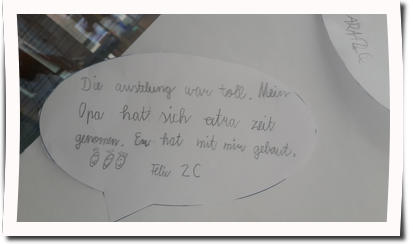 Die austelung war toll. Mein
Opa hat sich extra zeit
genomen. Er hat mit mir gebaut.
Felix 2C